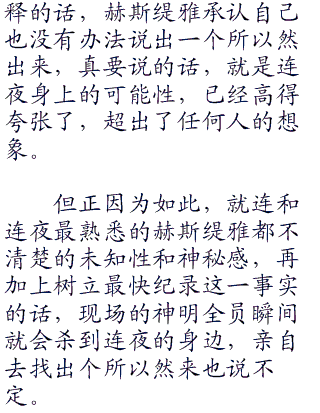 释的话，赫斯缇雅承认自己
也没有办法说出一个所以然
出来，真要说的话，就是连
夜身上的可能性，已经高得
夸张了，超出了任何人的想
象。
但正因为如此，就连和
连夜最熟悉的赫斯缇雅都不
清楚的未知性和神秘感，再
加上树立最快纪录这一事实
的话，现场的神明全员瞬间
就会杀到连夜的身边，亲自
去找出个所以然来也说不
定。